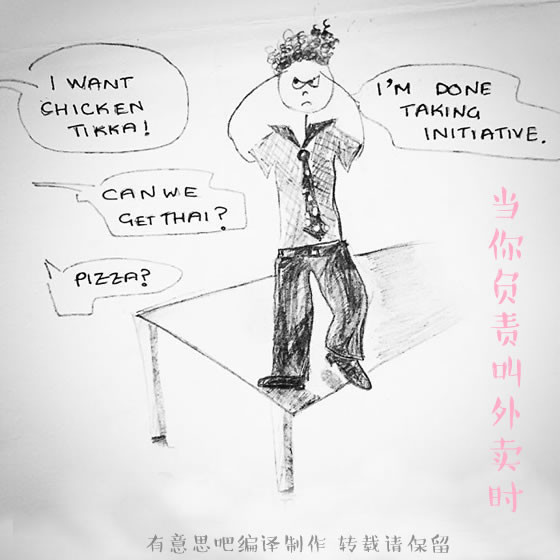 I WANT
CHICKEN
TIKKA!
I'M DONE
TAKING
INITIATIVE.
CAN WE
GET THAI?
PIZZA?
当你负责叫外卖时
有意思吧编译制作 转载请保留